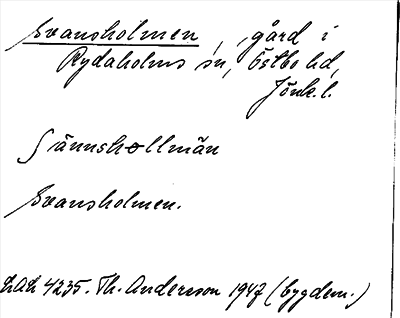 Svansholmen, gård i
Rydaholms sn, Östbo hd,
Jönk. l.
Svansholmen.
LAL 4235. Th. Andersson 1947 (bygdem.)